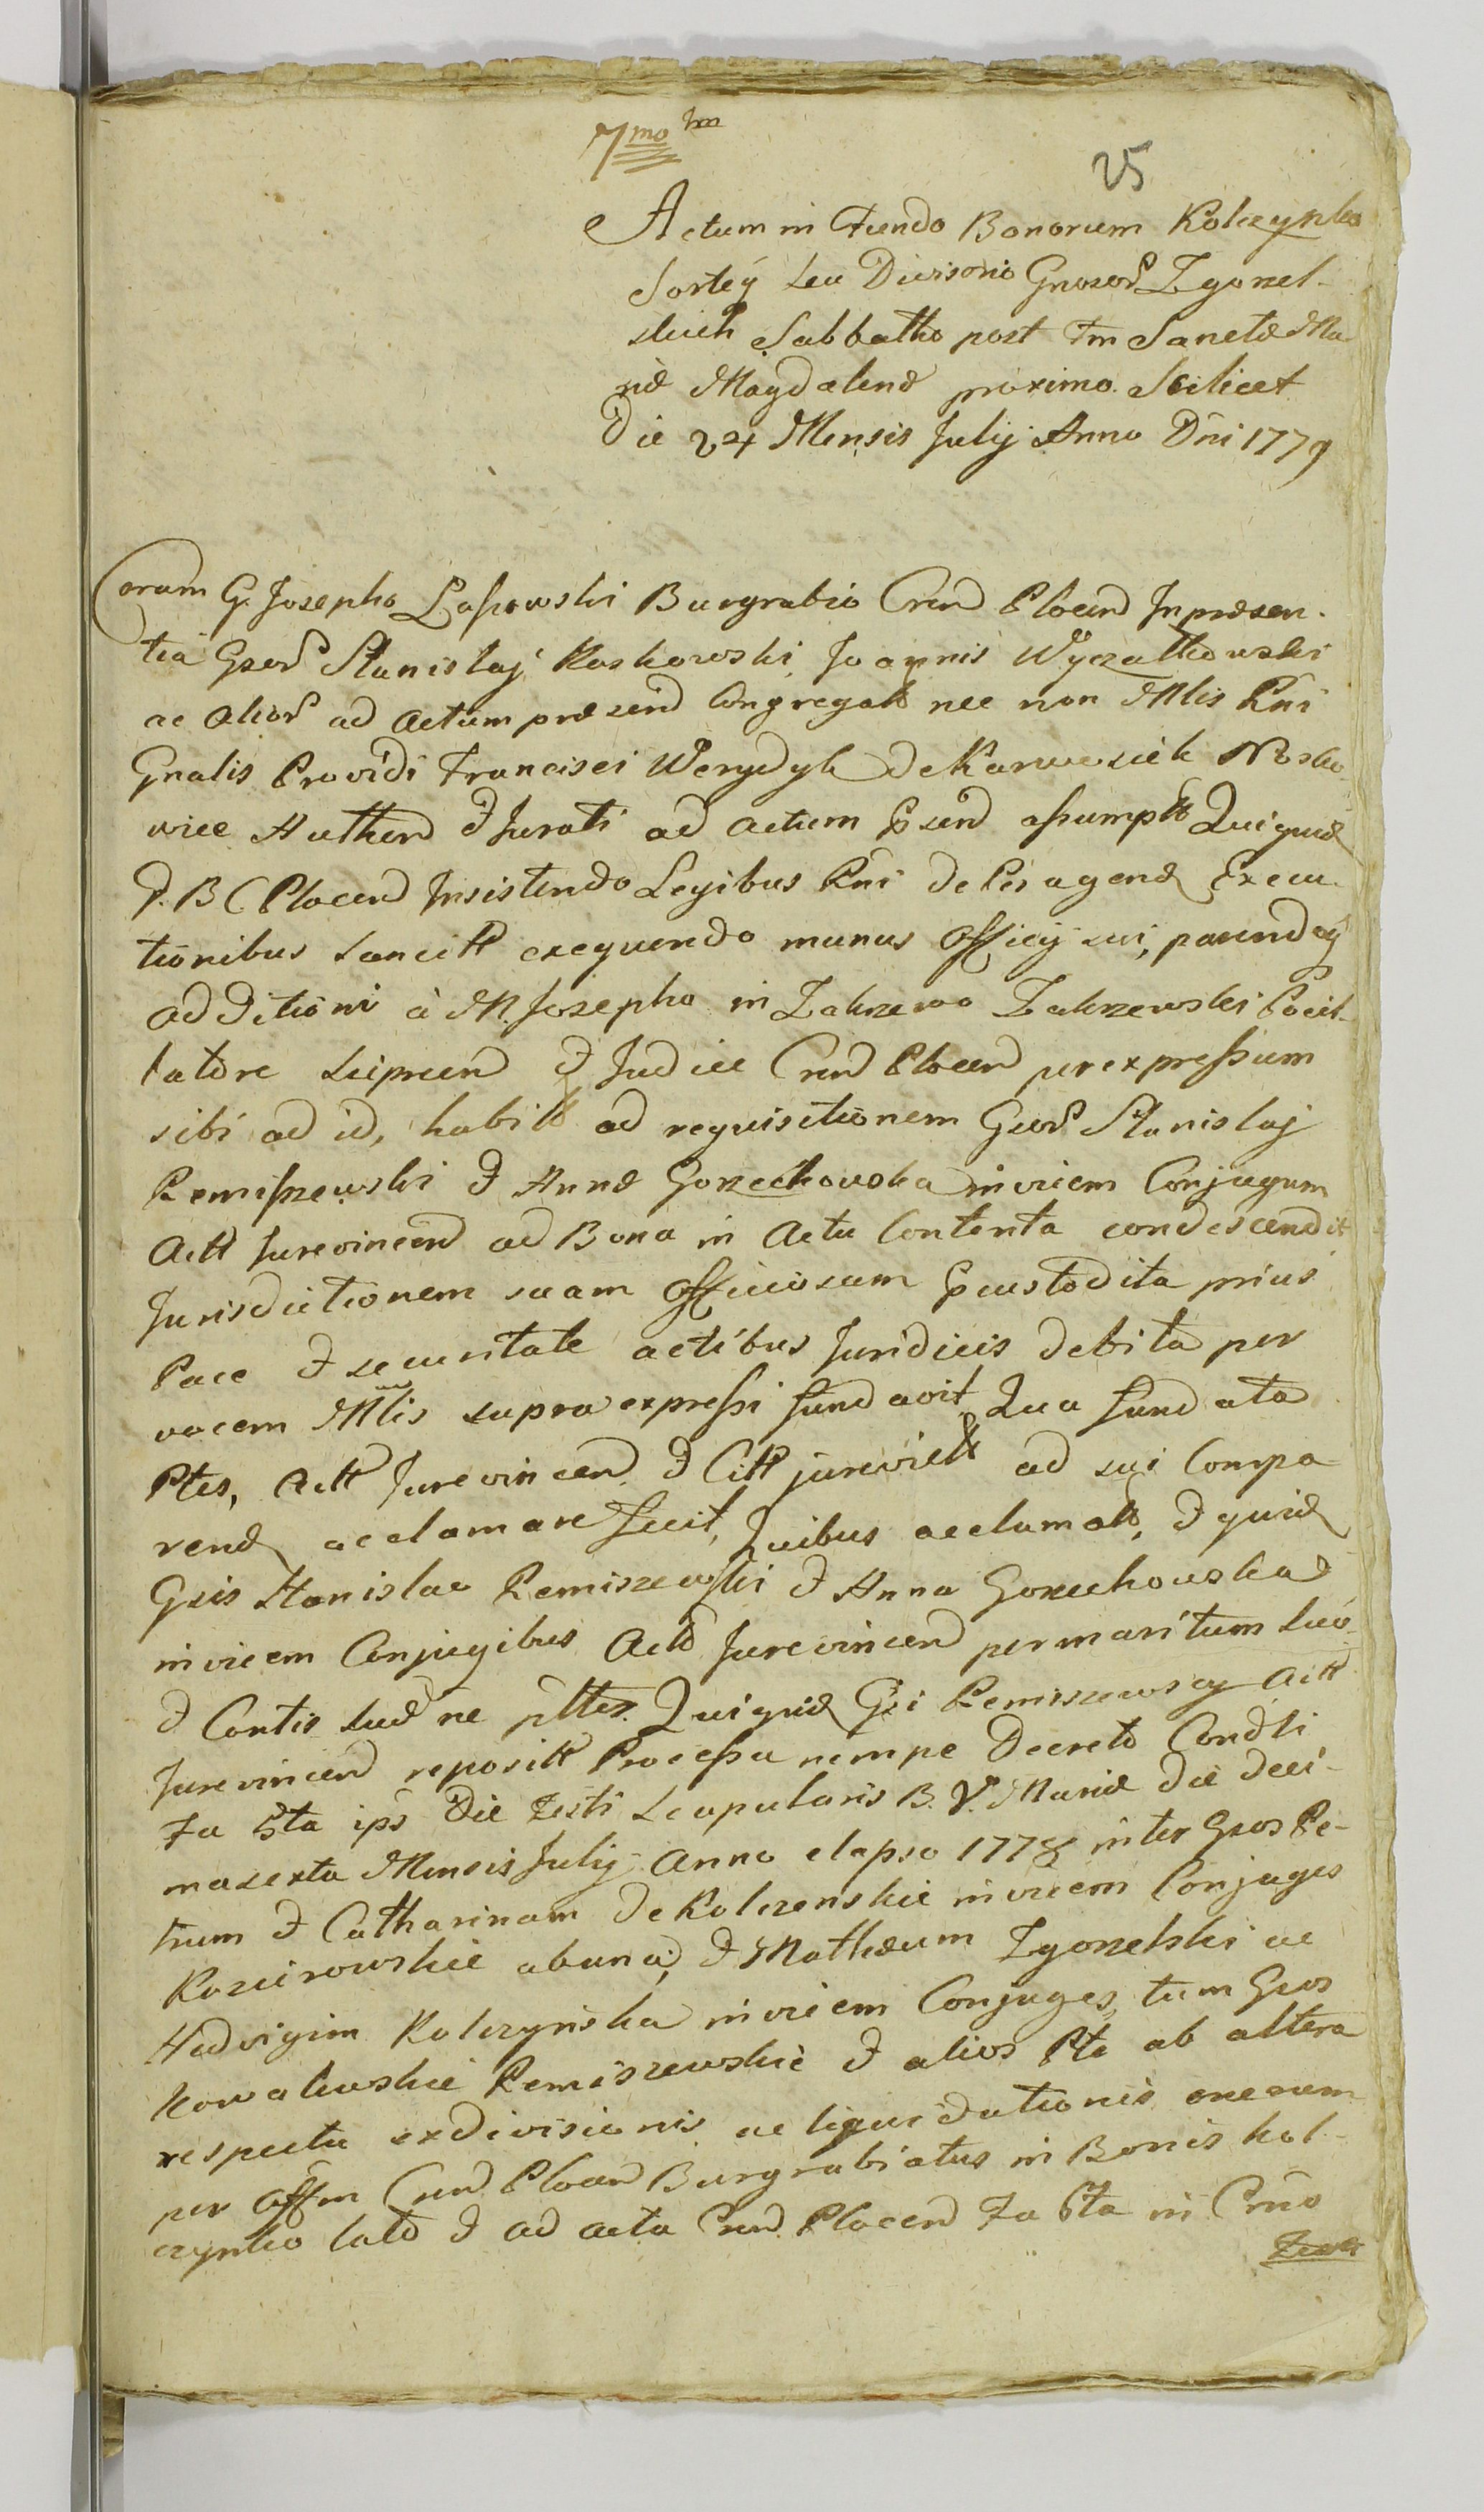 7mo hm
25
Actum in Fundo Bonorum Kolczynko
Sortey seu Divisorio Gnosor Zgorzel-
skich Sabbatho post Fm Sanctæ Ma
riæ Magdalenæ proximo Scilicet
Die 24 Mensis Julij Anno Dni 1779
Coram G. Josepho Lassowski Burgrabio Cren Plocen Inpræsen-
tia Gsor Stanislaj Raskowski Joannis Wyczalkowski
ac Alior ad Actum præsen Congregat nec non Mlis Rni
Gnalis Providi Francisci Werydyk de Karwosiek Nosko
wice Authen & Jurati ad Actum Psen assumpt Quiquid
G. B C Plocen Insistendo Legibus Rni de Peragend Execu-
tionibus Sancitt exequendo munus Officij sui, parendoq
additioni à M. Josepho in Zakrzewo Zakrzewski Pocil-
latore Lipnen & Judice Cren Plocen per expressum
sibi ad id, habitt ad requisitionem Gsor Stanislaj
Remiszewski & Annæ Gorzechowska invicem Conjugum
Actt Jurevincen ad Bona in Actu Contenta condescendit
Jurisdictionem suam Officiosam Pcustodita prius
Pace & securitate actibus Juridicis debita per
vocem Mlis supra expressi fundavit, Qua fundata
Ptes, Actt Jurevincen & Citt jurevictt ad sui Compa
rend acclamare fecit, Quibus acclamatt, & quid
Gsis Stanislao Remiszewski & Anna Gorzechowska
invicem Conjugibus Actt Jurevincen per maritum suo
& Contis suæ ne pttes. Quiquid Gsi Remiszewscy Actt
Jurevincen reposit Processu nempe Decreto Condli
Fa 5ta ips Die Festi Scapularis B. V. Mariæ die deci-
masexta Mensis Julij Anno elapso 1778 inter Gsos Pe-
trum & Catharinam de Kolczenskie invicem Conjuges
Kozierowskie abuna, & Mathæum Zgorzelski ac
Hedvigim Kolczynska invicem Conjuges, tum Gsos
Kowalewskie Remiszewskie & alios Pte ab altera
respectu exdivisionis ac liquidationis onerum
per Offm Cren Plocen Burgrabiatus in Bonis Kol-
czynko lato & ad acta Cren Plocen Fa 6ta in Crno